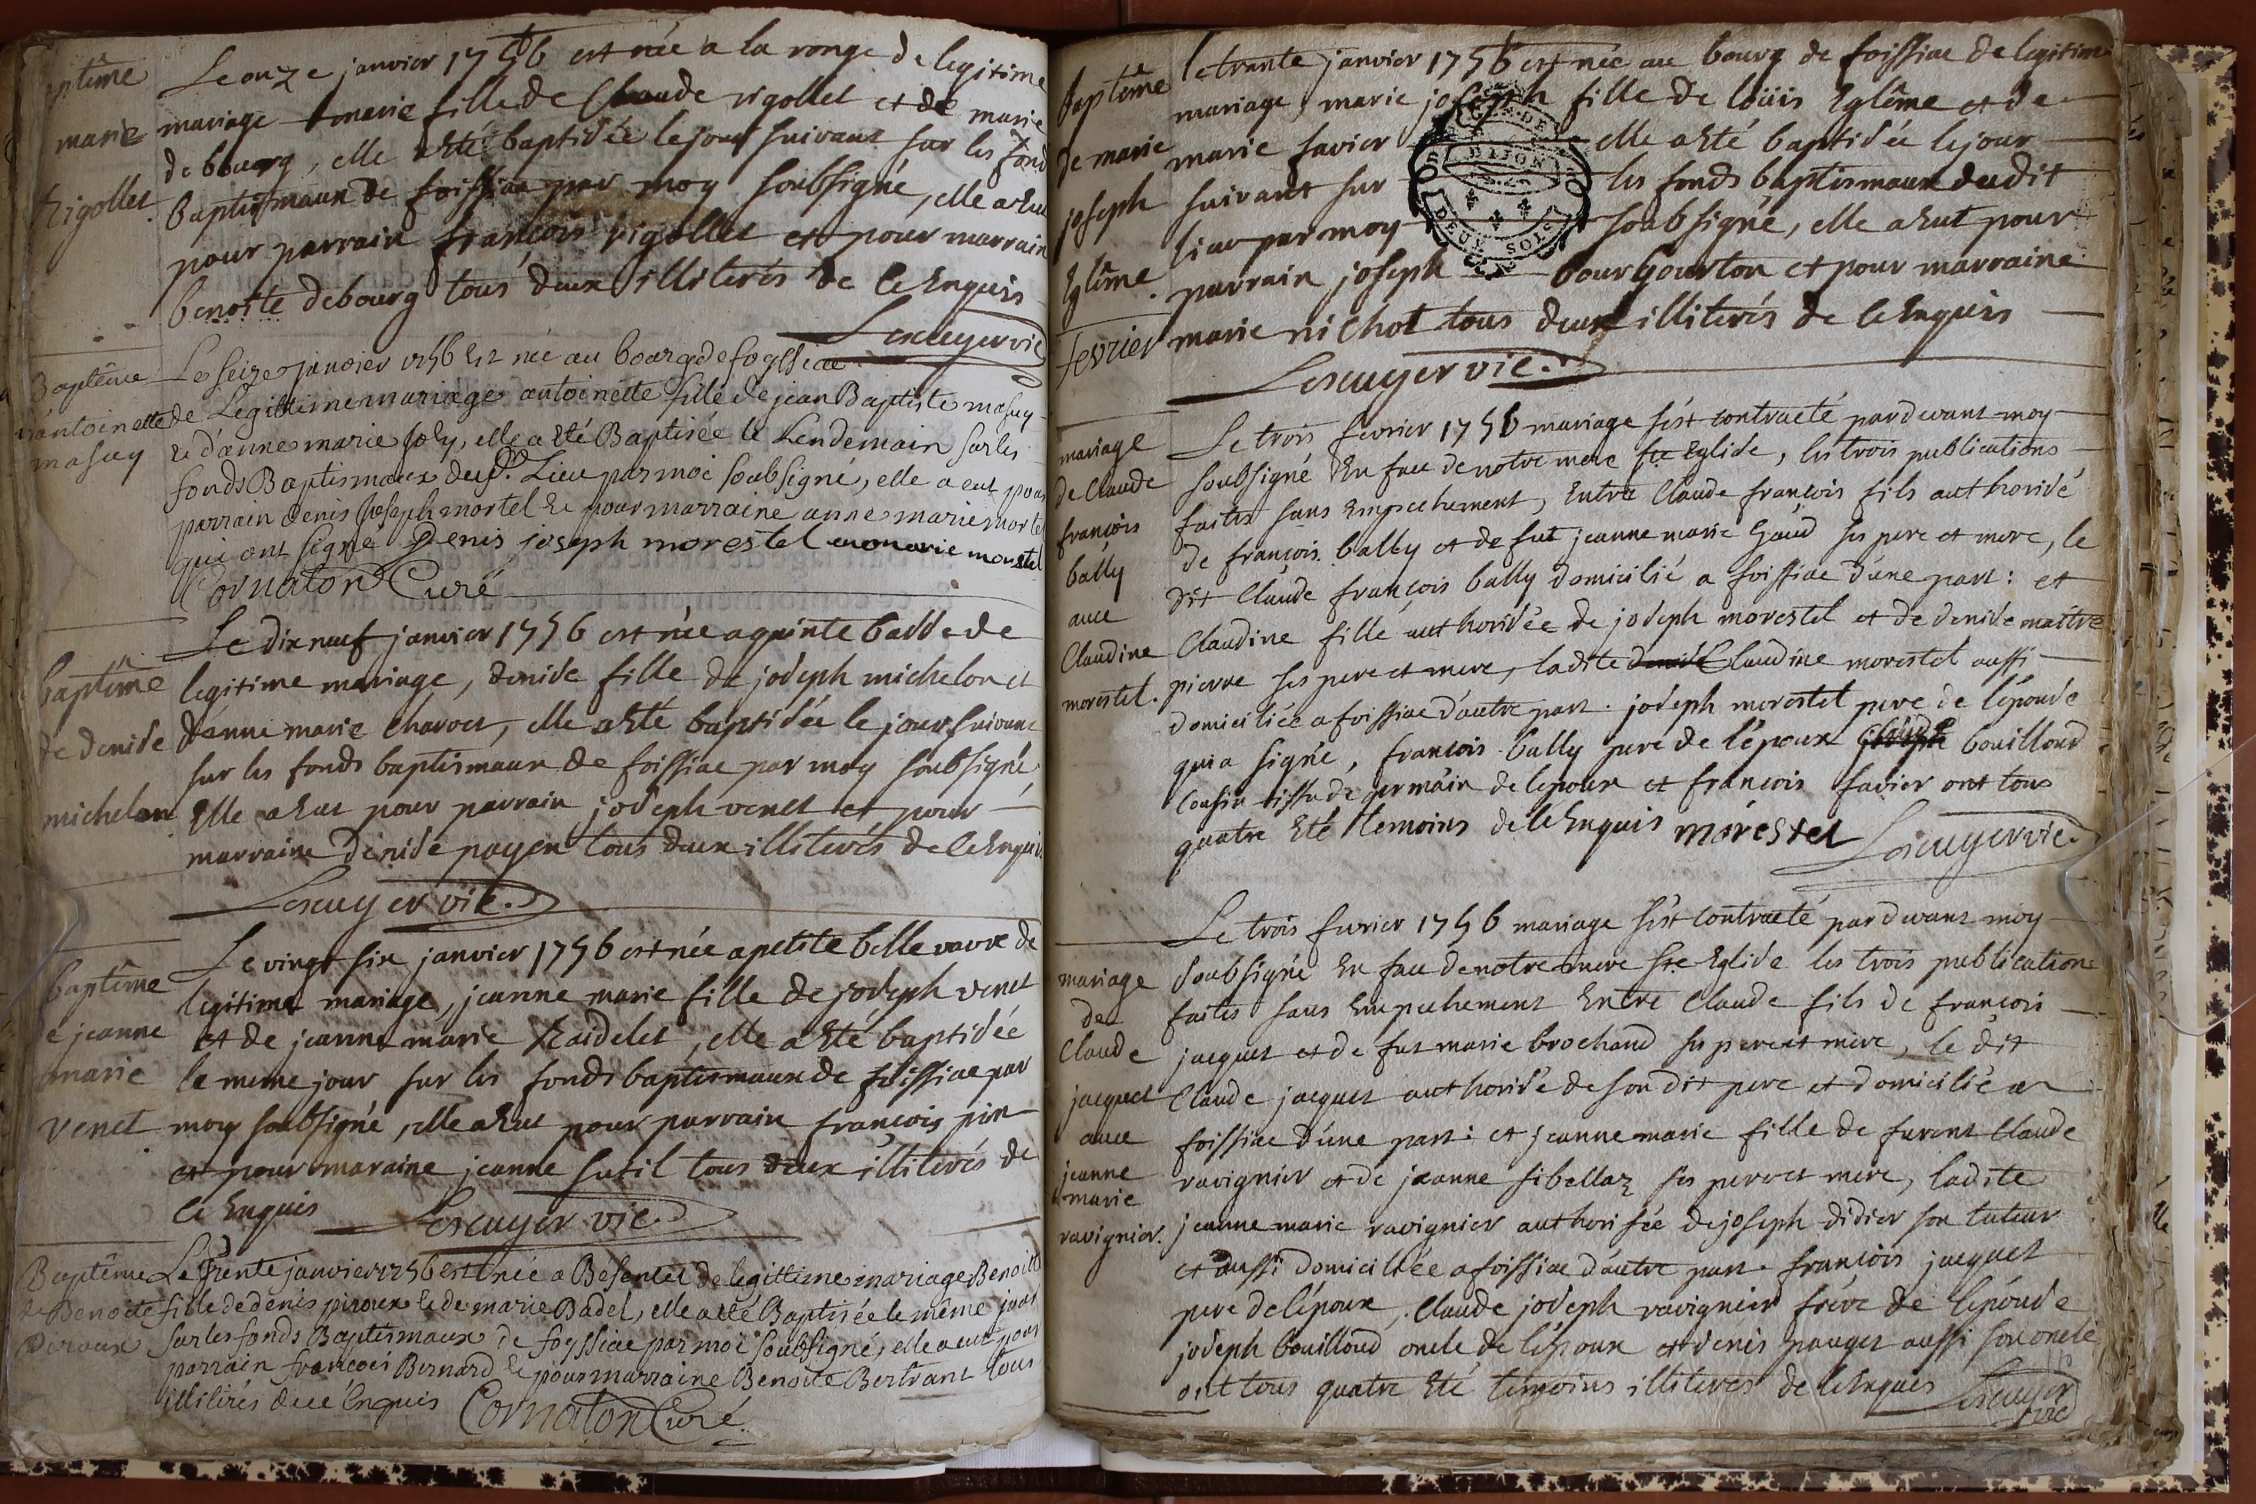 baptême
marie
rigollet.
Le onze janvier 1756 est née a la ronge de legitime
mariage marie fille de Claude rigollet et de marie
debourg, elle a êté baptisée le jour suivant sur les fonds
baptismaux de foissiac par moy soubsigné, elle a eut
pour parrain françois rigollet et pour marraine
benoite debourg tous deux illiterés de ce Enquis
Lescuyer vic.
Baptême
d'antoinette
masuy
Le seize janvier 1756 est née au bourg de foyssiac
de Legittime mariage antoinette fille de jean Baptiste masuy
et d'anne marie joly, elle a été Baptisée le Lendemain sur les
fonds Baptismaux dud. Lieu par moi soubsigné, elle a eut pour
parrain denis joseph mortel et pour marraine anne marie mortel
qui ont signé Denis joseph morestel anne marie morestel
Cornaton Curé
baptême
de denise
michelon
Le dix neuf janvier 1756 est née a quinte basse de
legitime mariage, denise fille de joseph michelon et
d'anne marie Charvet, elle a êté baptisée le jour suivant
sur les fonds baptismaux de foissiac par moy soubsigné
Elle a eut pour parrain joseph venet et pour
marraine denise payen tous deux illiterés de ce Enquis
Lescuyer vic.
baptême
de jeanne
marie
venet
Le vingt six janvier 1756 est née a petite belle vavre de
legitime mariage, jeanne marie fille de joseph venet
et de jeanne marie Raidelet, elle a êté baptisée
le meme jour sur les fonds baptismaux de foissiac par
moy soubsigné, elle a eut pour parrain françois pin
et pour maraine jeanne sutil tous deux illiterés de
ce Enquis Lescuyer vic.
Baptême
de Benoite
Piroux
Le trente janvier 1756 est née a Besentet de legittime mariage Benoite
fille de denis piroux et de marie Badel, elle a été Baptisée le même jour
sur les fonds Baptismaux de foyssiac par moi soubsigné, elle a eut pour
parrain françois Bernard et pour marraine Benoite Bertrant tous
illitérés de ce Enquis Cornaton Curé.
baptême
de marie
joseph
Eglême.
le trante janvier 1756 est née au bourg de foissiac de legitime
mariage, marie joseph fille de loüis Eglême et de
marie favier elle a êté baptisée le jour
suivant sur les fonds baptismaux dudit
lieu par moy soubsigné, elle a eut pour
parrain joseph bourgourton et pour marraine
marie nichot tous deux illiterés de ce Enquis
Lescuyer vic.
DIJON
DEUX SOLS
fevrier
mariage
de Claude
françois
bally
avec
Claudine
morestel.
Le trois fevrier 1756 mariage s'est contracté pardevant moy
soubsigné En face de notre mere ste Eglise, les trois publications
faites sans Empechement, Entre Claude françois fils authorisé
de françois bally et de fut jeanne marie Gaud ses pere et mere, le
dit Claude françois bally domicilié a foissiac d'une part: et
Claudine fille authorisée de joseph morestel et de denise maitre
pierre ses pere et mere, ladite Claudine morestel aussi
domiciliée a foissiac d'autre part. joseph morestel pere de l'épouse
qui a signé, françois bally pere de l'époux bouilloud
Cousin issu de germain de lepoux et françois favier ont tous
quatre Eté temoins de ce Enquis morestel Lescuyer vic.
mariage
de
Claude
jacquet
avec
jeanne
marie
ravignier.
Le trois fevrier 1756 mariage s'est contracté pardevant moy
soubsigné En face de notre mere ste Eglise les trois publications
faites sans Empechement Entre Claude fils de françois
jacquet et de fut marie brochand ses pere et mere, le dit
Claude jacquet authorisé de son dit pere et domicilié a
foissiac d'une part: et jeanne marie fille de furent Claude
ravignier et de jeanne sibellaz ses pere et mere, ladite
jeanne marie ravignier authorisée de joseph didier son tuteur
et aussi domiciliée a foissiac d'autre part. françois jacquet
pere de l'époux, Claude joseph ravignier frere de l'épouse
joseph bouilloud oncle de l'époux et denis pauget aussi son oncle
ont tous quatre Eté temoins illiteres de ce Enquis Lescuyer
vic